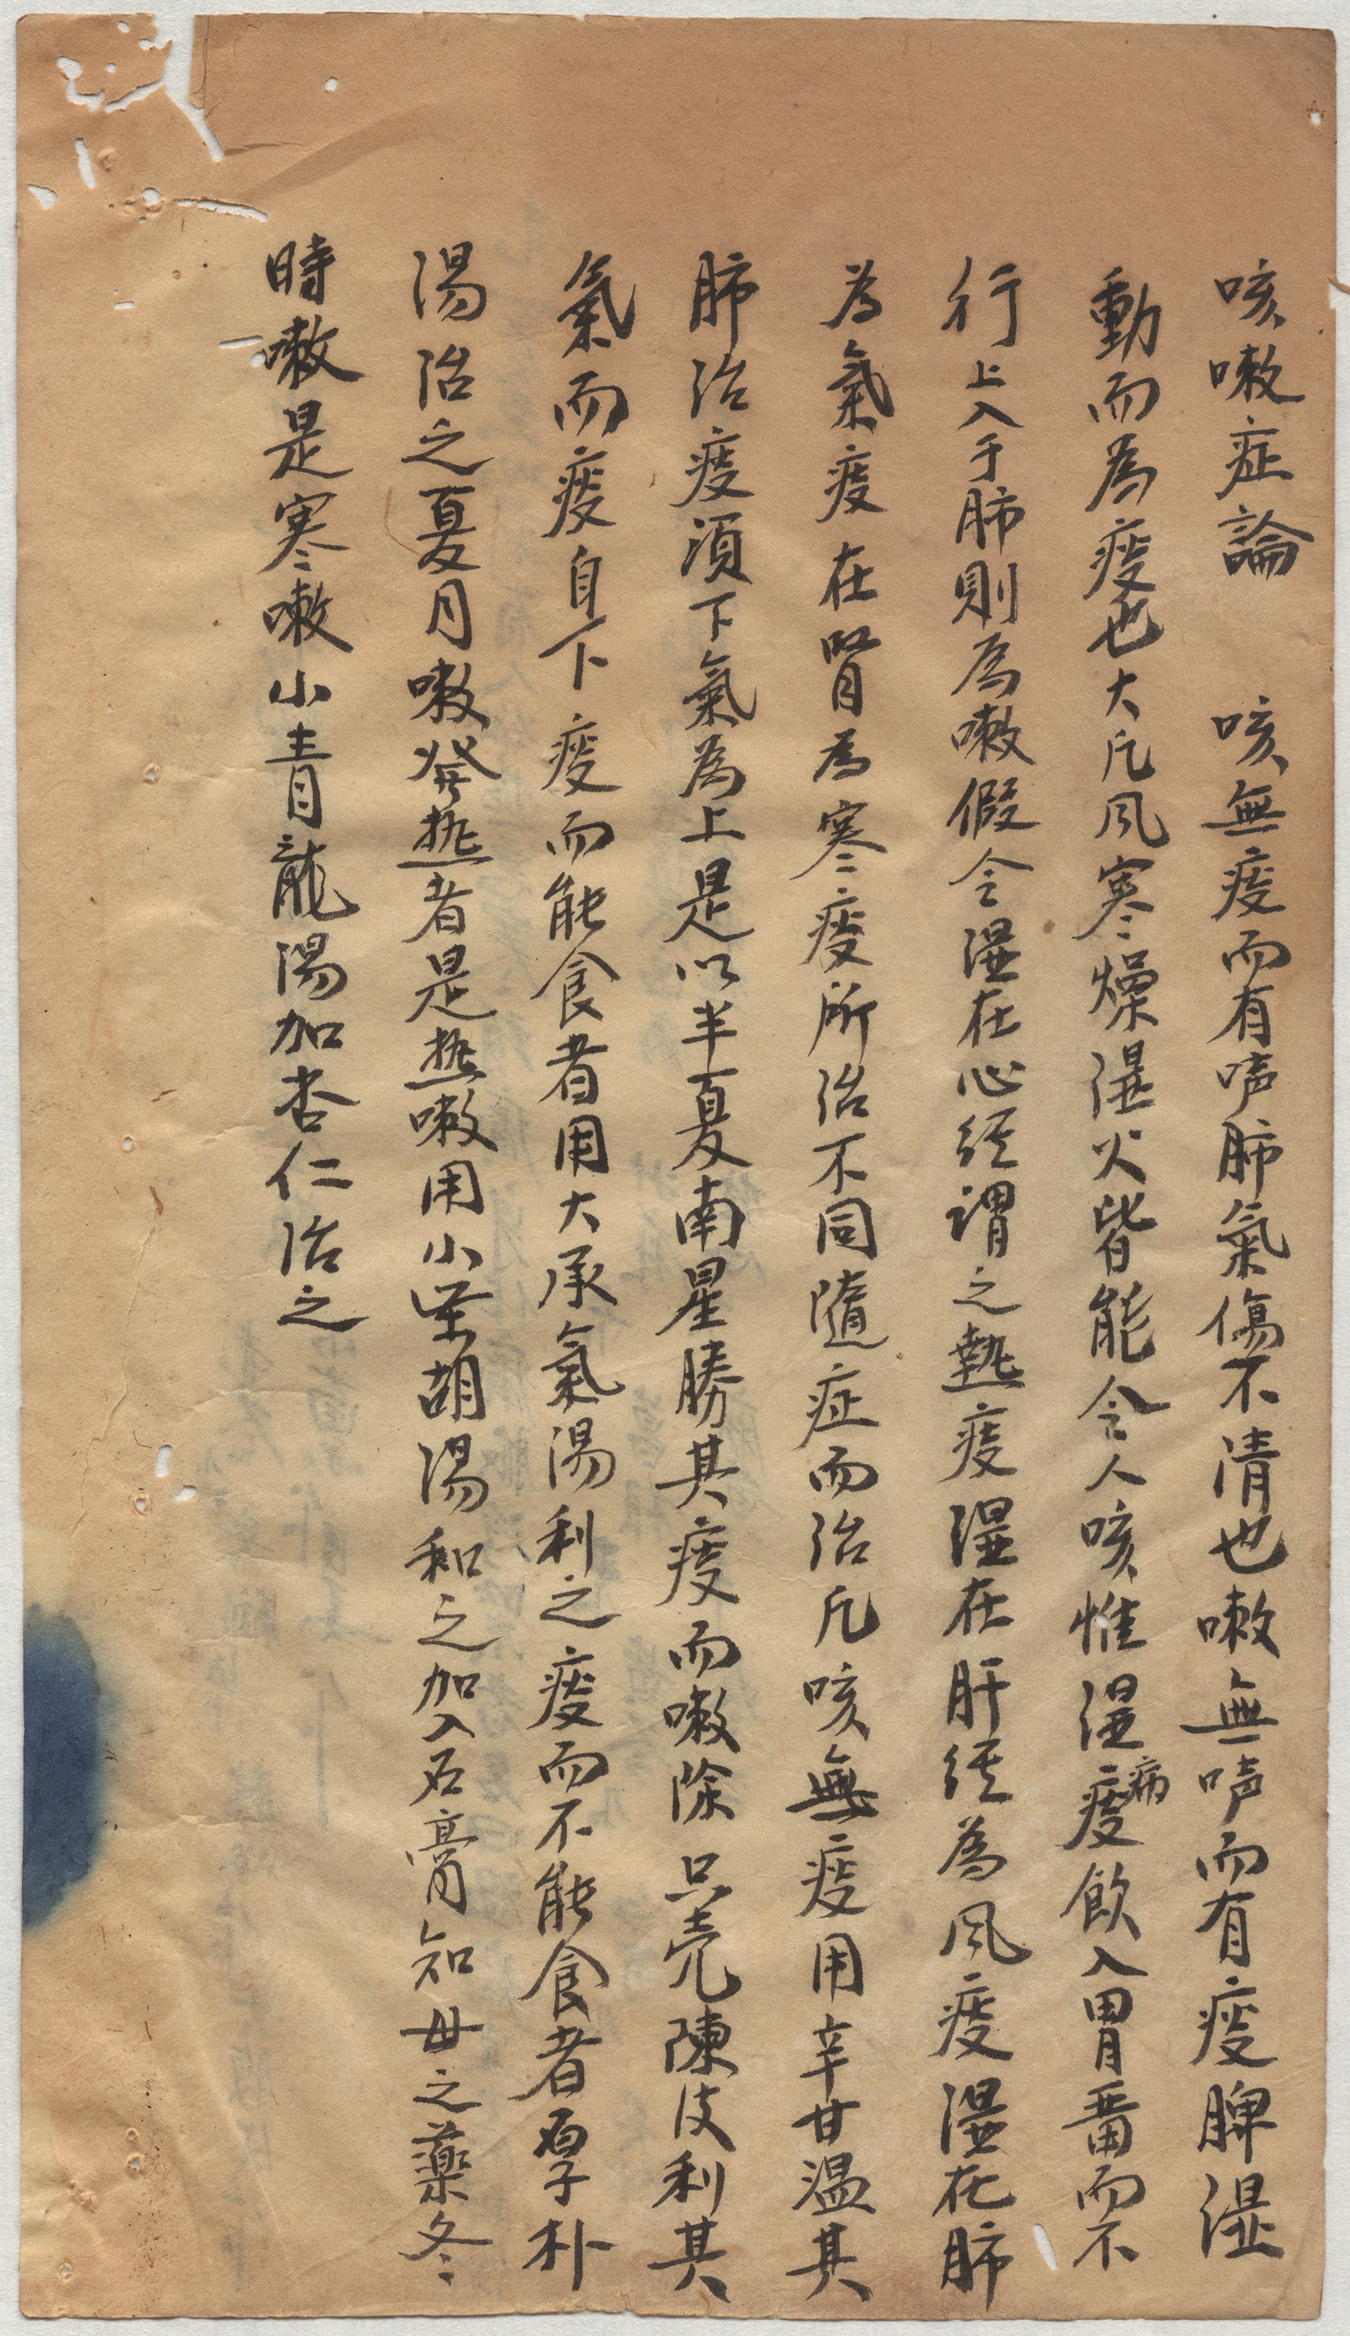 咳嗽症論　咳無痰而有声肺氣傷不清也嗽無声而有痰脾湿
動而為痰也大凢风寒燥湿火皆能令人咳惟湿病痰飲入胃畱而不
行上入于肺則為嗽假令湿在心経謂之熱痰湿在肝経為风痰湿在肺
為氣痰在腎為寒痰所治不同隨症而治凢咳無痰用辛甘温其
肺治痰須下氣為上是以半夏南星勝其痰而嗽除只壳陳皮利其
氣而痰自下痰而能食者用大承氣湯利之痰而不能食者厚朴
湯治之夏月嗽發热者是热嗽用小柴胡湯和之加入石膏知母之薬冬
時嗽是寒嗽小青龍湯加杏仁治之